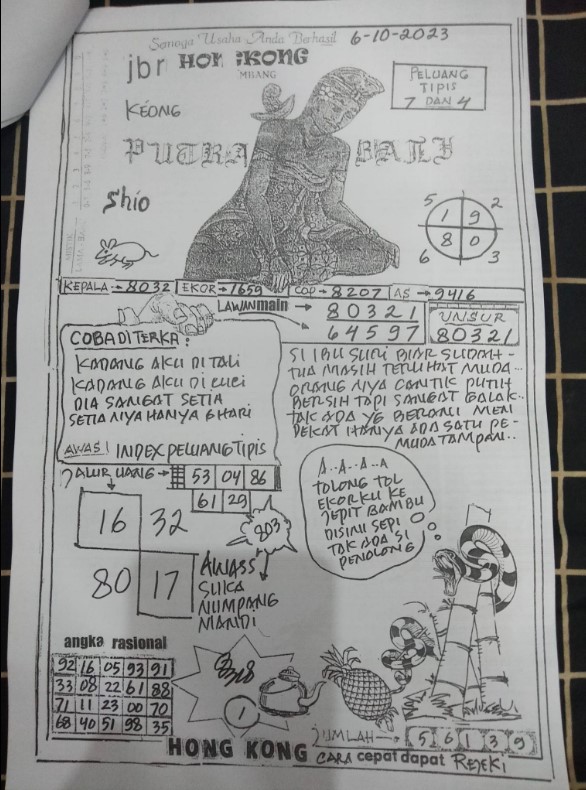 Semoga Usaha Anda Berhasil 6-10-2023
jbr HONGKONG
MBANG
PELUANG
TIPIS
7 DAN 4
KEONG
PUTRA BALI
Shio
5 2
1 9
8 0
6 3
KEPALA → 8032 EKOR → 1659 COP → 8207 AS → 9416
LAWANmain → 80321
64597
UNSUR
80321
COBA DITERKA :
KADANG AKU DI TALI
KADANG AKU DI CUCI
DIA SANGAT SETIA
SETIA NYA HANYA 6 HARI
AWAS! INDEX PELUANG TIPIS
SI IBU SURI BIAR SUDAH -
TUA MASIH TERLIHAT MUDA...
ORANG NYA CANTIK PUTIH
BERSIH TAPI SANGAT GALAK..
TAK ADA YG BERANI MEN
DEKAT HANYA ADA SATU PE-
MUDA TAMPAN..
JALUR UANG → 53 04 86
61 29
16 32
80 17
803
AWASS
SUKA
NUMPANG
MANDI
A..A..A..A
TOLONG TOL
EKORKU KE
JEPIT BAMBU
DISINI SEPI
TAK ADA SI
PENOLONG
angka rasional
92 16 05 93 91
33 08 22 61 88
71 11 23 00 70
68 40 51 98 35
1
JUMLAH → 5 6 1 3 9
HONG KONG CARA cepat dapat REJEKI